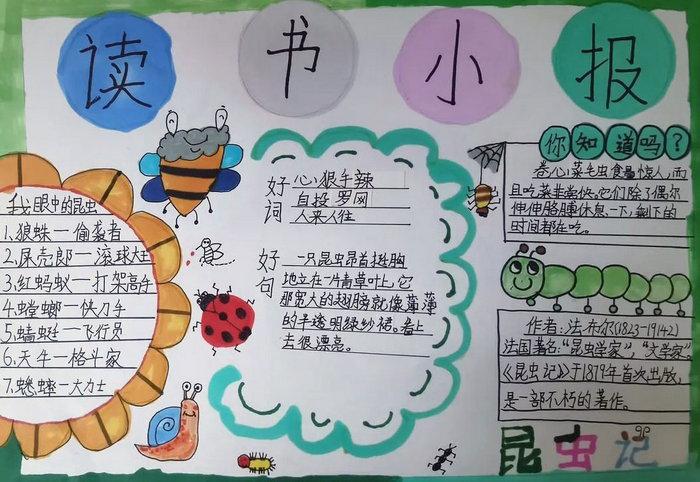 读书小报
我眼中的昆虫
1.狼蛛一偷袭者
2.屎壳郎一滚球大王
3.红蚂蚁一打架高手
4.螳螂一快刀手
5.蜻蜓一飞行员
6.天牛一格斗家
7.蟋蟀一大力士
好词
心狠手辣
自投罗网
人来人往
好句
一只昆虫昂首挺胸
地立在一片青草叶上,它
那宽大的翅膀就像薄薄
的半透明绿纱裙。看上
去很漂亮。
你知道吗?
卷心菜毛虫食量惊人,而
且吃菜非常快,它们除了偶尔
伸伸胳膊休息一下,剩下的
时间都在吃。
作者:法布尔(1823-19142)
法国著名:“昆虫学家”,“文学家”
《昆虫记》于1879年首次出版,
是一部不朽的著作。
昆虫记